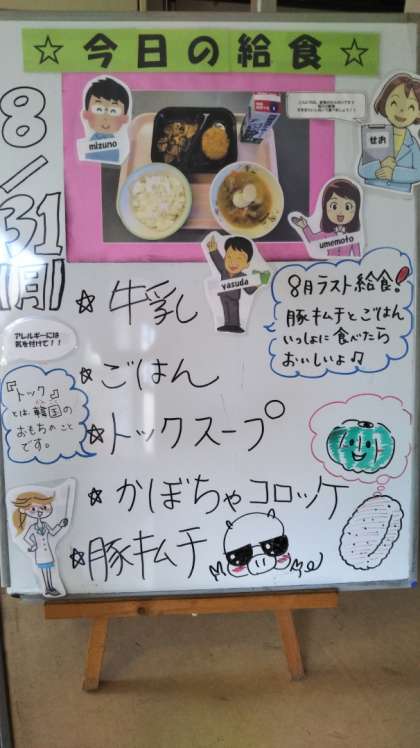 ☆今日の給食☆
8/31(月)
mizuno
せお
umemoto
yasuda
☆牛乳
8月ラスト給食!
豚キムチとごはん
いっしょに食べたら
おいしいよ♫
アレルギーには
気を付けて!!
☆ごはん
『トック』
とは、韓国の
おもちのこと
です。
☆トックスープ
☆かぼちゃコロッケ
☆豚キムチ